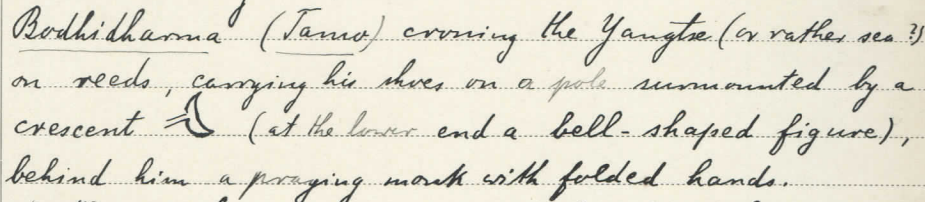 Bodhidharma (Tamo) crossing the Yangtse (or rather sea?)
on reeds, carrying his shoes on a pole surmounted by a
crescent (at the lower end a bell-shaped figure),
behind him a praying monk with folded hands.